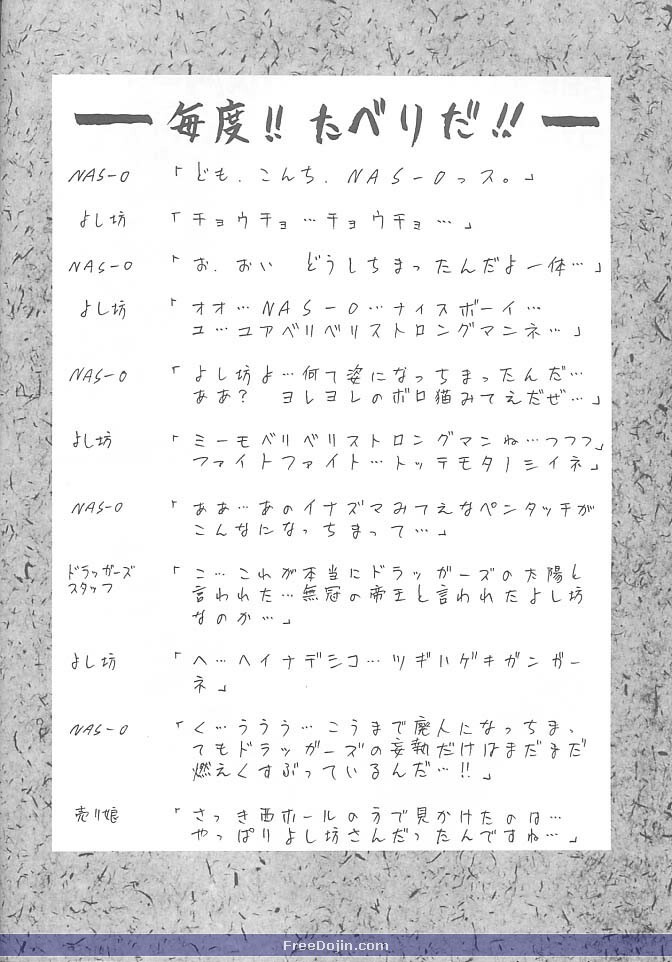 毎度!! たべりだ!!
NAS-O 「ども、こんち、NAS-Oっス。」
よし坊 「チョウチョ…チョウチョ…」
NAS-O 「お、おい どうしちまったんだよ一体…」
よし坊 「オオ…NAS-O…ナイスボーイ…
ユ…ユアベリベリストロングマンネ…」
NAS-O 「よし坊よ…何て姿になっちまったんだ…
ああ? ヨレヨレのボロ猫みてえだぜ…」
よし坊 「ミーモベリベリストロングマンね…フフフ
ファイトファイト…トッテモタノシイネ」
NAS-O 「ああ…あのイナズマみてえなペンタッチが
こんなになっちまって…」
ドラッガーズ
スタッフ 「こ…これが本当にドラッガーズの太陽と
言われた…無冠の帝王と言われたよし坊
なのか…」
よし坊 「ヘ…ヘイナデシコ…ツギハゲキガンガー
ネ」
NAS-O 「く…ううう…こうまで廃人になっちまっ
てもドラッガーズの妄執だけはまだまだ
燃えくすぶっているんだ…!!」
売り娘 「さっき西ホールの方で見かけたのは…
やっぱりよし坊さんだったんですね…」
FreeDojin.com